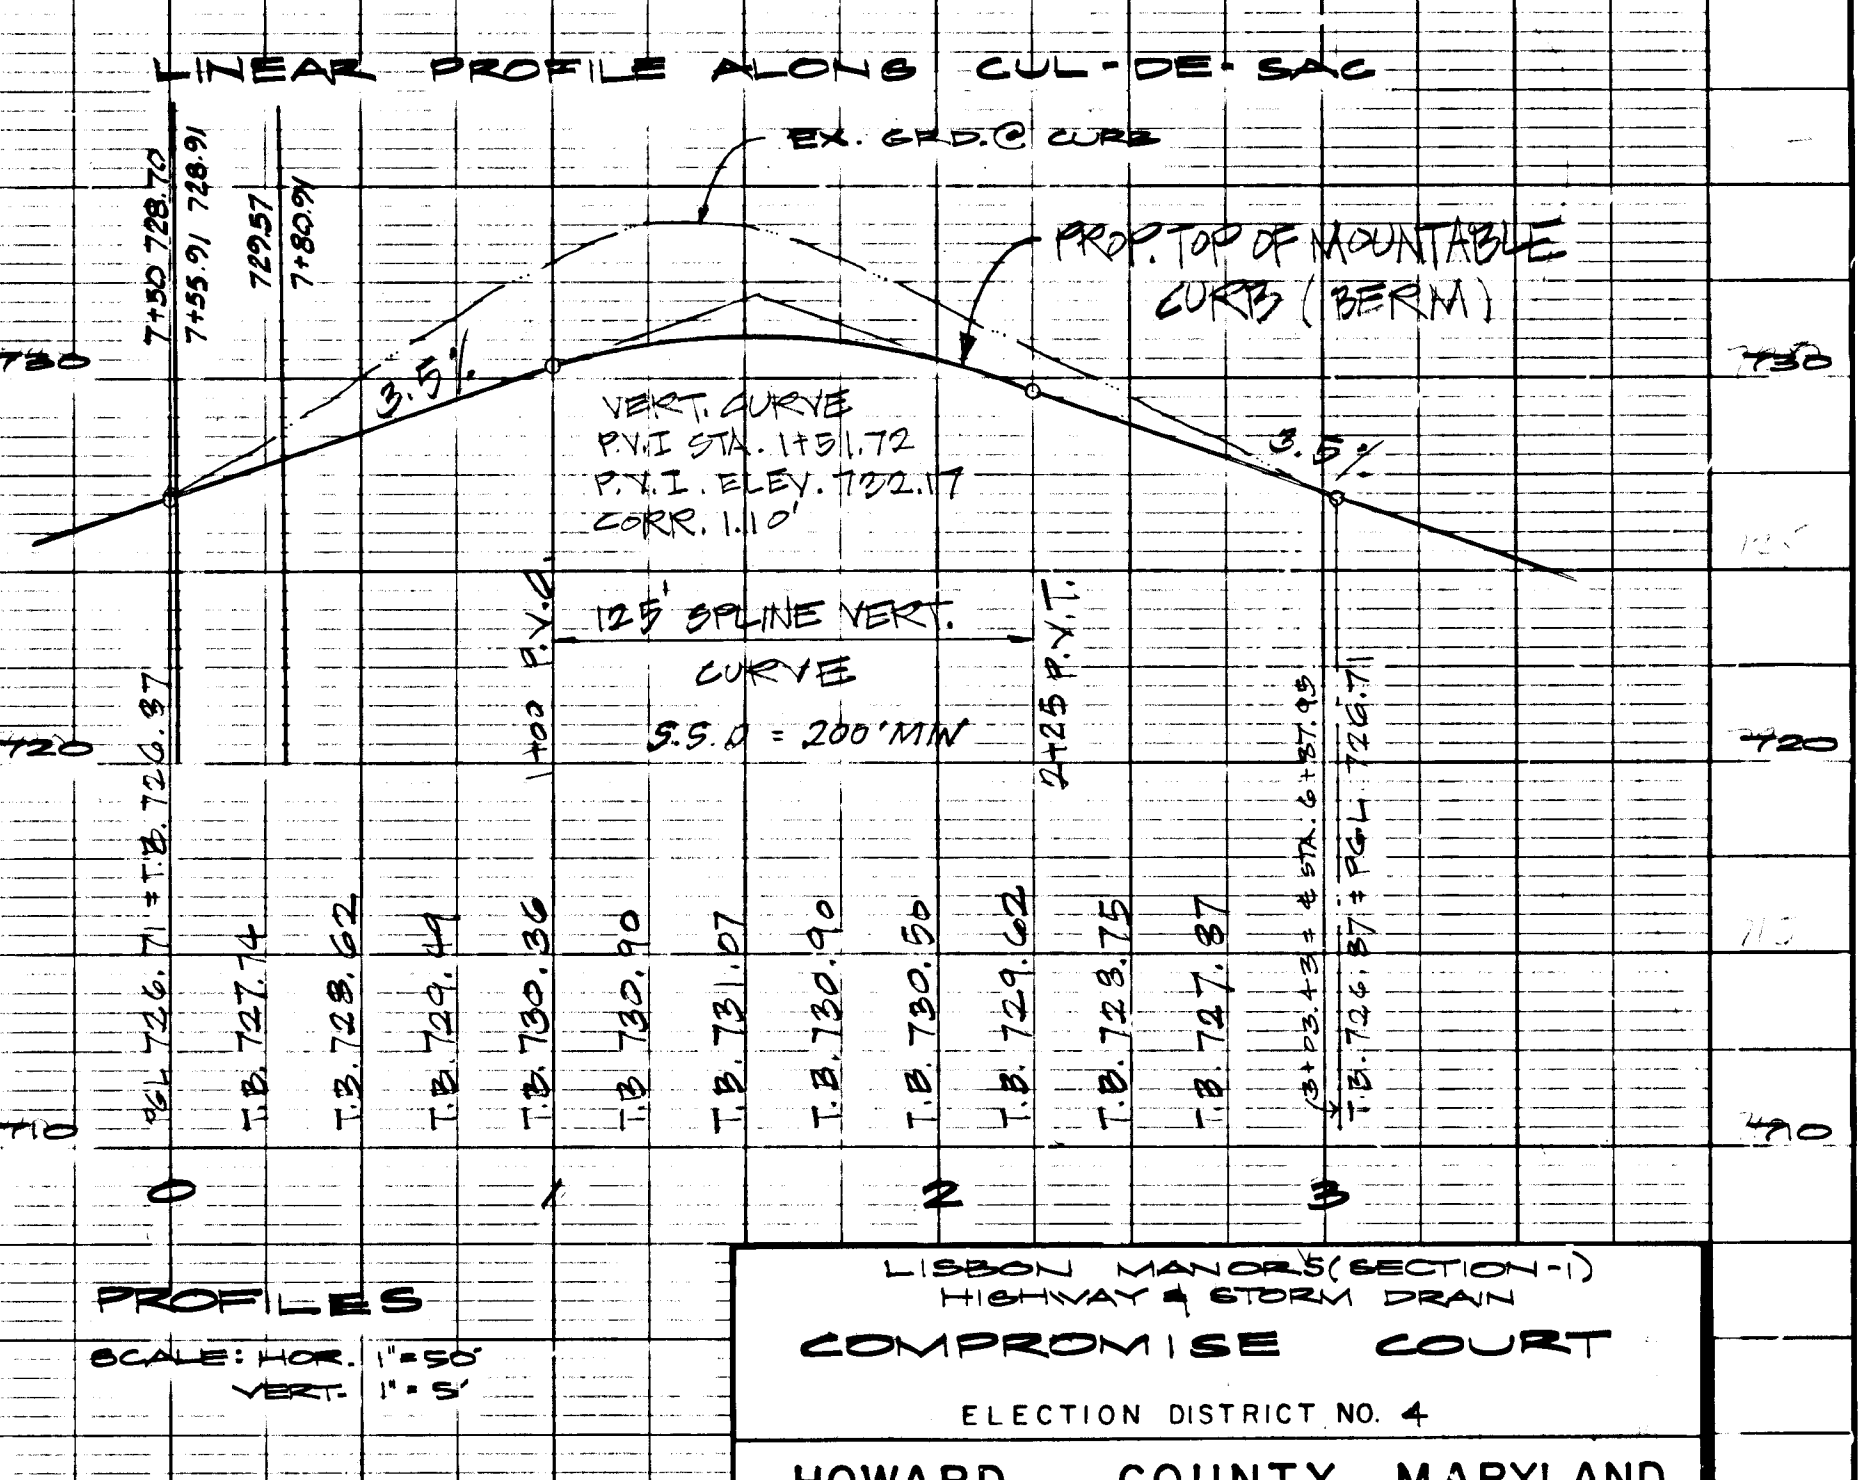 LINEAR PROFILE ALONG CUL-DE-SAC
EX. GRD.@ CURB
7+50 728.70
7+55.91 728.91
729.57
7+80.91
PROP. TOP OF MOUNTABLE
CURB (BERM)
730
730
3.5%
3.5%
VERT. CURVE
P.V.I STA. 1+51.72
P.V.I. ELEV. 732.17
CORR. 1.10'
1+00 P.V.C.
125' SPLINE VERT.
CURVE
S.S.D = 200' MIN
2+25 P.V.T.
720
720
PGL 726.71 = T.B. 726.87
T.B. 727.74
T.B. 728.62
T.B. 729.49
T.B. 730.36
T.B 730.90
T.B. 731.07
T.B. 730.90
T.B. 730.50
T.B. 729.62
T.B. 728.75
T.B. 727.87
3+03.43 = ℄ STA. 6+87.95
T.B. 726.87 = PGL 726.71
710
710
0 1 2 3
PROFILES
SCALE: HOR. 1"=50'
VERT. 1"=5'
LISBON MANORS (SECTION-1)
HIGHWAY & STORM DRAIN
COMPROMISE COURT
ELECTION DISTRICT NO. 4
HOWARD COUNTY MARYLAND